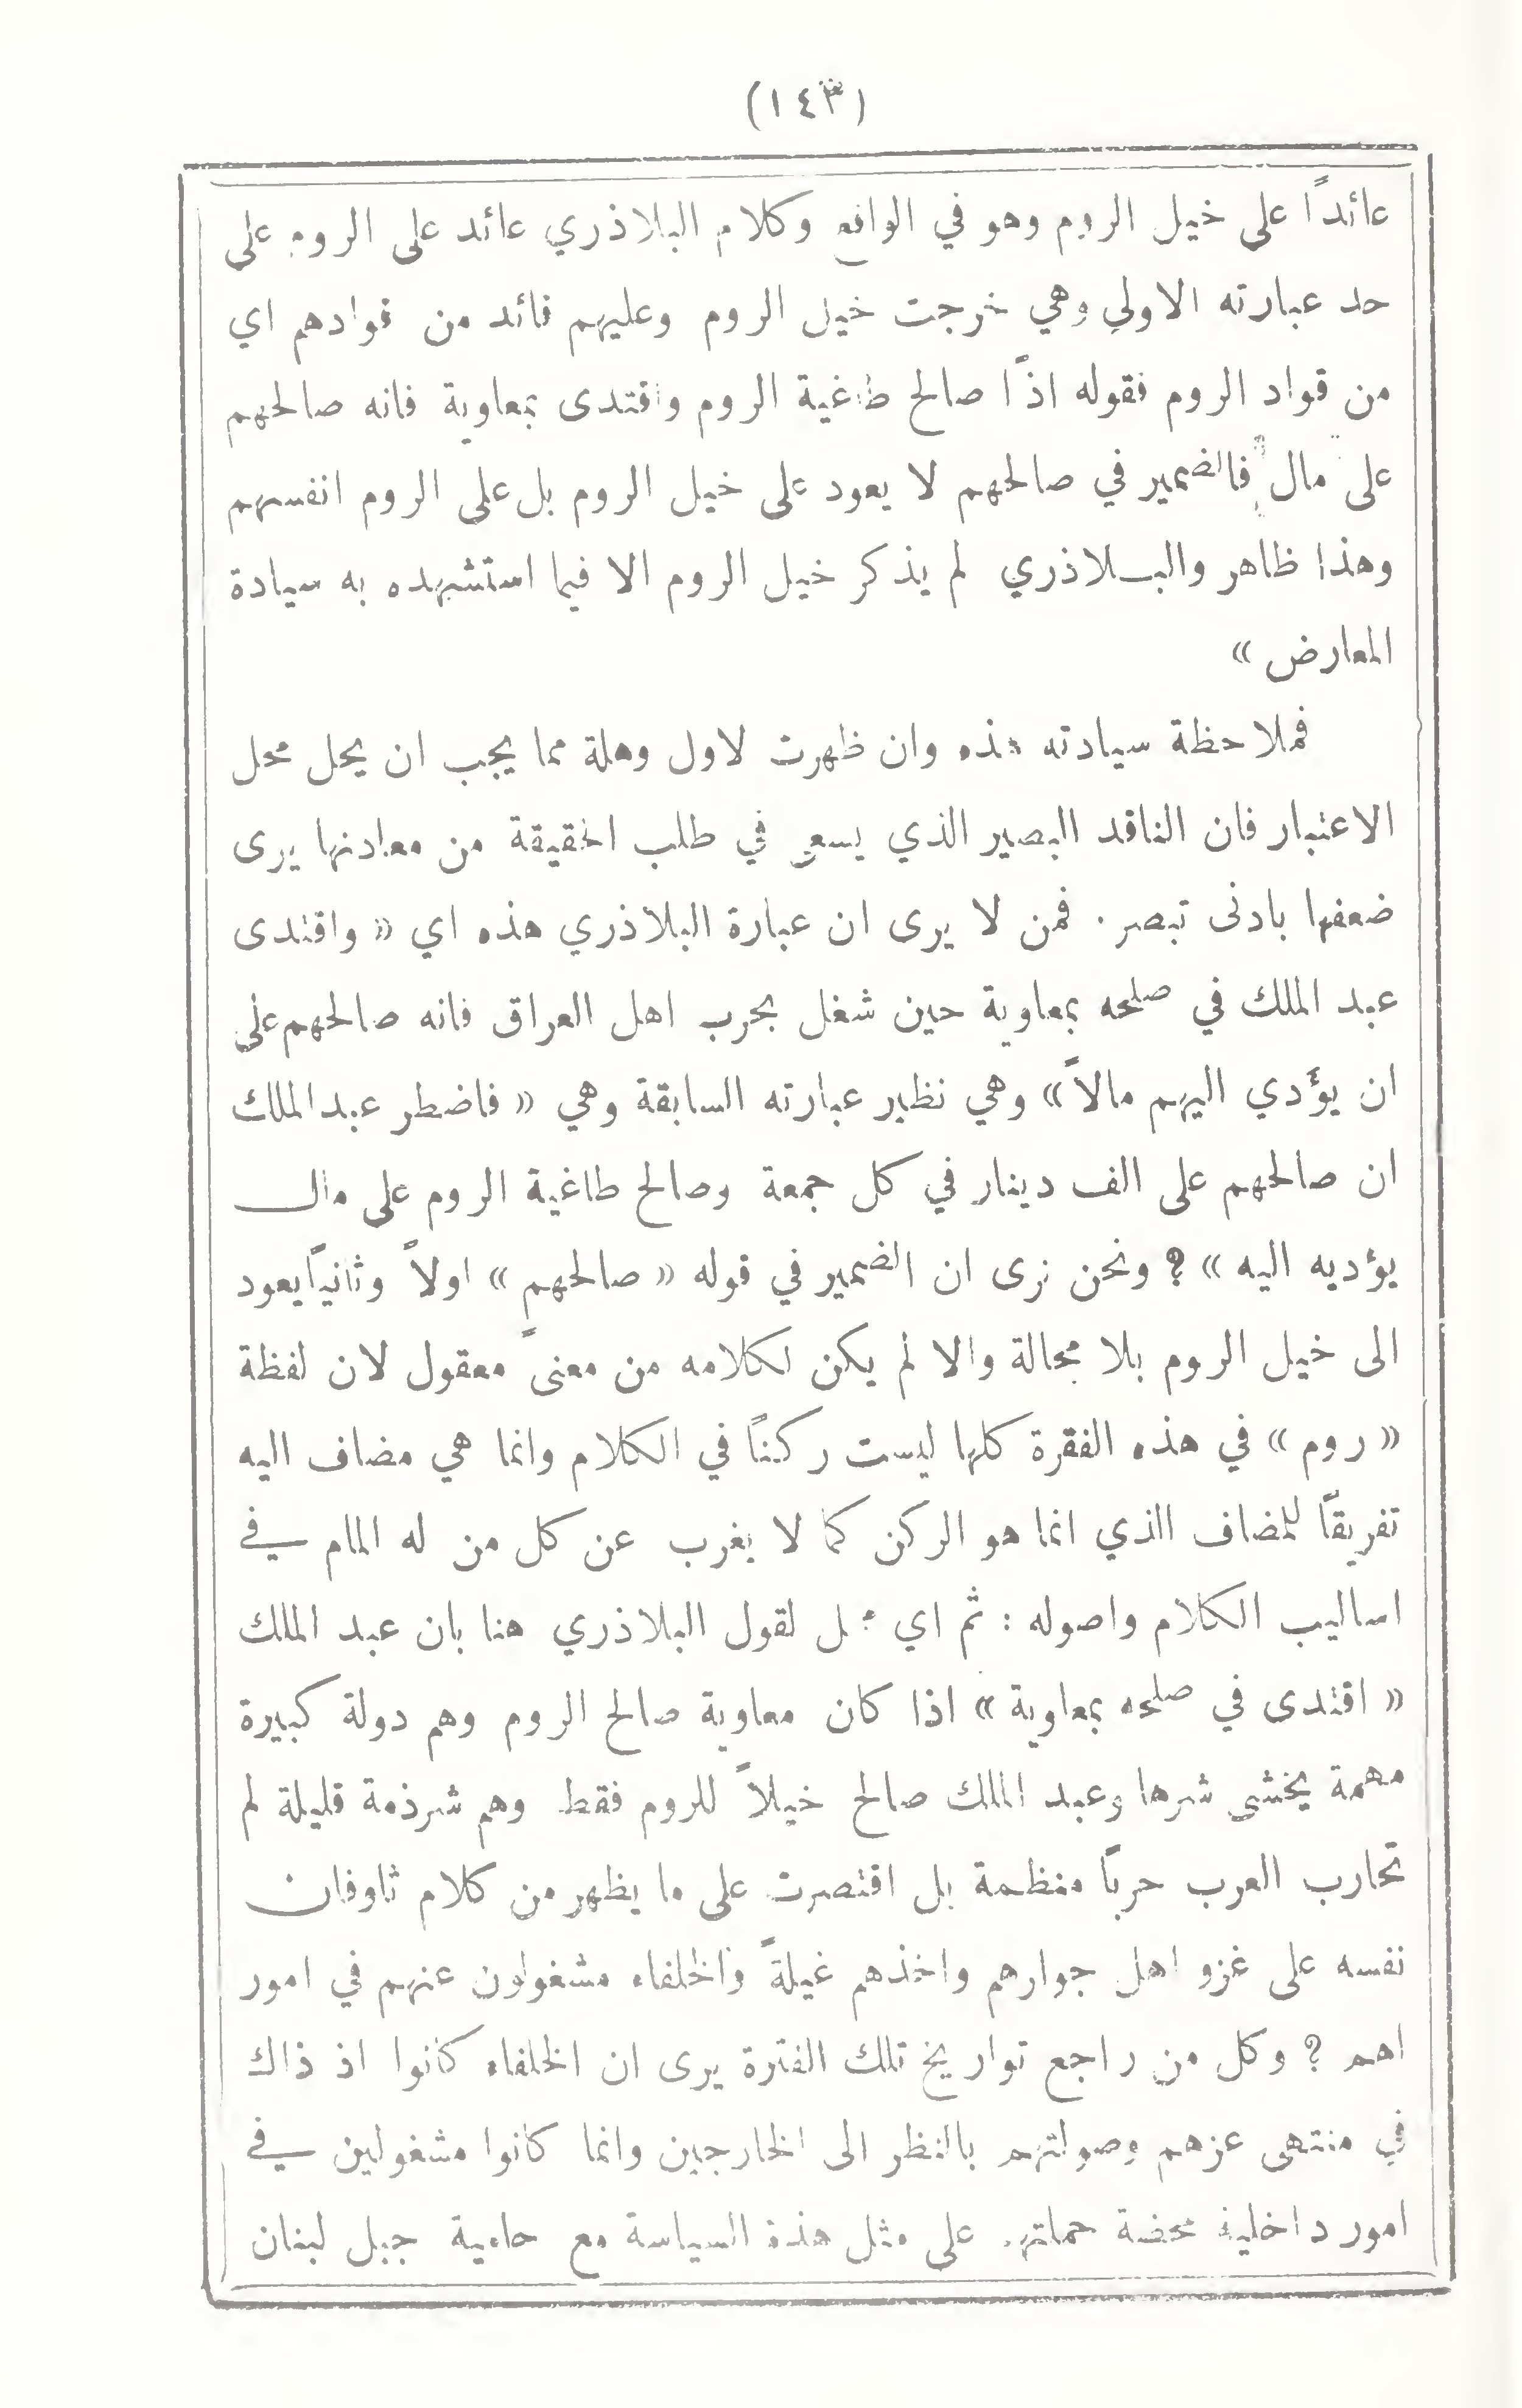 (١٤٣)
عائداً على خيل الروم وهو في الواقع وكلام البلاذري عائد على الروم على
حد عبارته الاولى وهي خرجت خيل الروم وعليهم قائد من قوادهم اي
من قواد الروم فقوله اذاً صالح طاغية الروم واقتدى بمعاوية فانه صالحهم
على مال فالضمير في صالحهم لا يعود على خيل الروم بل على الروم انفسهم
وهذا ظاهر والبــلاذري لم يذكر خيل الروم الا فيما استشهده به سيادة
المعارض »
فملاحظة سيادته هذه وان ظهرت لاول وهلة مما يجب ان يحل محل
الاعتبار فان الناقد البصير الذي يسعى في طلب الحقيقة من معادنها يرى
ضعفها بادنى تبصر . فمن لا يرى ان عبارة البلاذري هذه اي « واقتدى
عبد الملك في صلحه بمعاوية حين شغل بحرب اهل العراق فانه صالحهم على
ان يؤدي اليهم مالاً » وهي نظير عبارته السابقة وهي « فاضطر عبد الملك
ان صالحهم على الف دينار في كل جمعة وصالح طاغية الروم على مال
يؤديه اليه » ؟ ونحن نرى ان الضمير في قوله « صالحهم » اولاً وثانياً يعود
الى خيل الروم بلا محالة والا لم يكن لكلامه من معنىً معقول لان لفظة
« روم » في هذه الفقرة كلها ليست ركناً في الكلام وانما هي مضاف اليه
تفريقاً للمضاف الذي انما هو الركن كما لا يغرب عن كل من له المام في
اساليب الكلام واصوله : ثم اي لقول البلاذري هنا بان عبد الملك
« اقتدى في صلحه بمعاوية » اذا كان معاوية صالح الروم وهم دولة كبيرة
مهمة يخشى شرها وعبد الملك صالح خيلاً للروم فقط وهم شرذمة قليلة لم
تحارب العرب حرباً منظمة بل اقتصرت على ما يظهر من كلام ثاوفان
نفسه على غزو اهل جوارهم واخذهم غيلةً والخلفاء مشغولون عنهم في امور
اهم ؟ وكل من راجع تواريخ تلك الفترة يرى ان الخلفاء كانوا اذ ذاك
في منتهى عزهم وصولتهم بالنظر الى الخارجين وانما كانوا مشغولين في
امور داخلية محضة حملتهم على مثل هذه السياسة مع حامية جبل لبنان